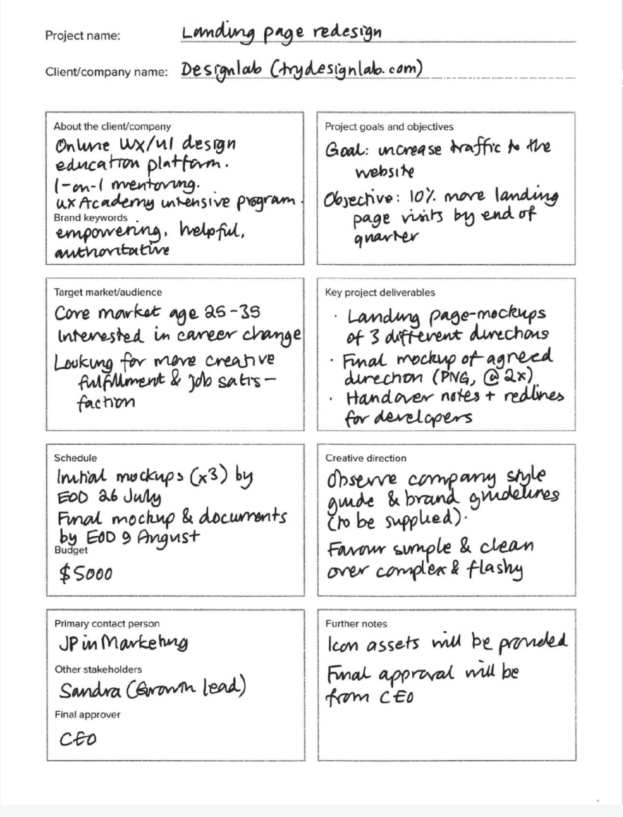 Project name: Landing page redesign
Client/company name: Designlab (trydesignlab.com)
About the client/company
Online UX/UI design
education platform.
1-on-1 mentoring.
UX Academy intensive program.
Brand keywords
empowering, helpful,
authoritative
Project goals and objectives
Goal: increase traffic to the
website
Objective: 10% more landing
page visits by end of
quarter
Target market/audience
Core market age 25-35
Interested in career change
Looking for more creative
fulfillment & job satis-
faction
Key project deliverables
· Landing page-mockups
of 3 different directions
· Final mockup of agreed
direction (PNG, @2x)
· Handover notes + redlines
for developers
Schedule
Initial mockups (x3) by
EOD 26 July
Final mockup & documents
by EOD 9 August
Budget
$5000
Creative direction
Observe company style
guide & brand guidelines
(to be supplied).
Favour simple & clean
over complex & flashy
Primary contact person
JP in Marketing
Other stakeholders
Sandra (Growth lead)
Final approver
CEO
Further notes
Icon assets will be provided
Final approval will be
from CEO